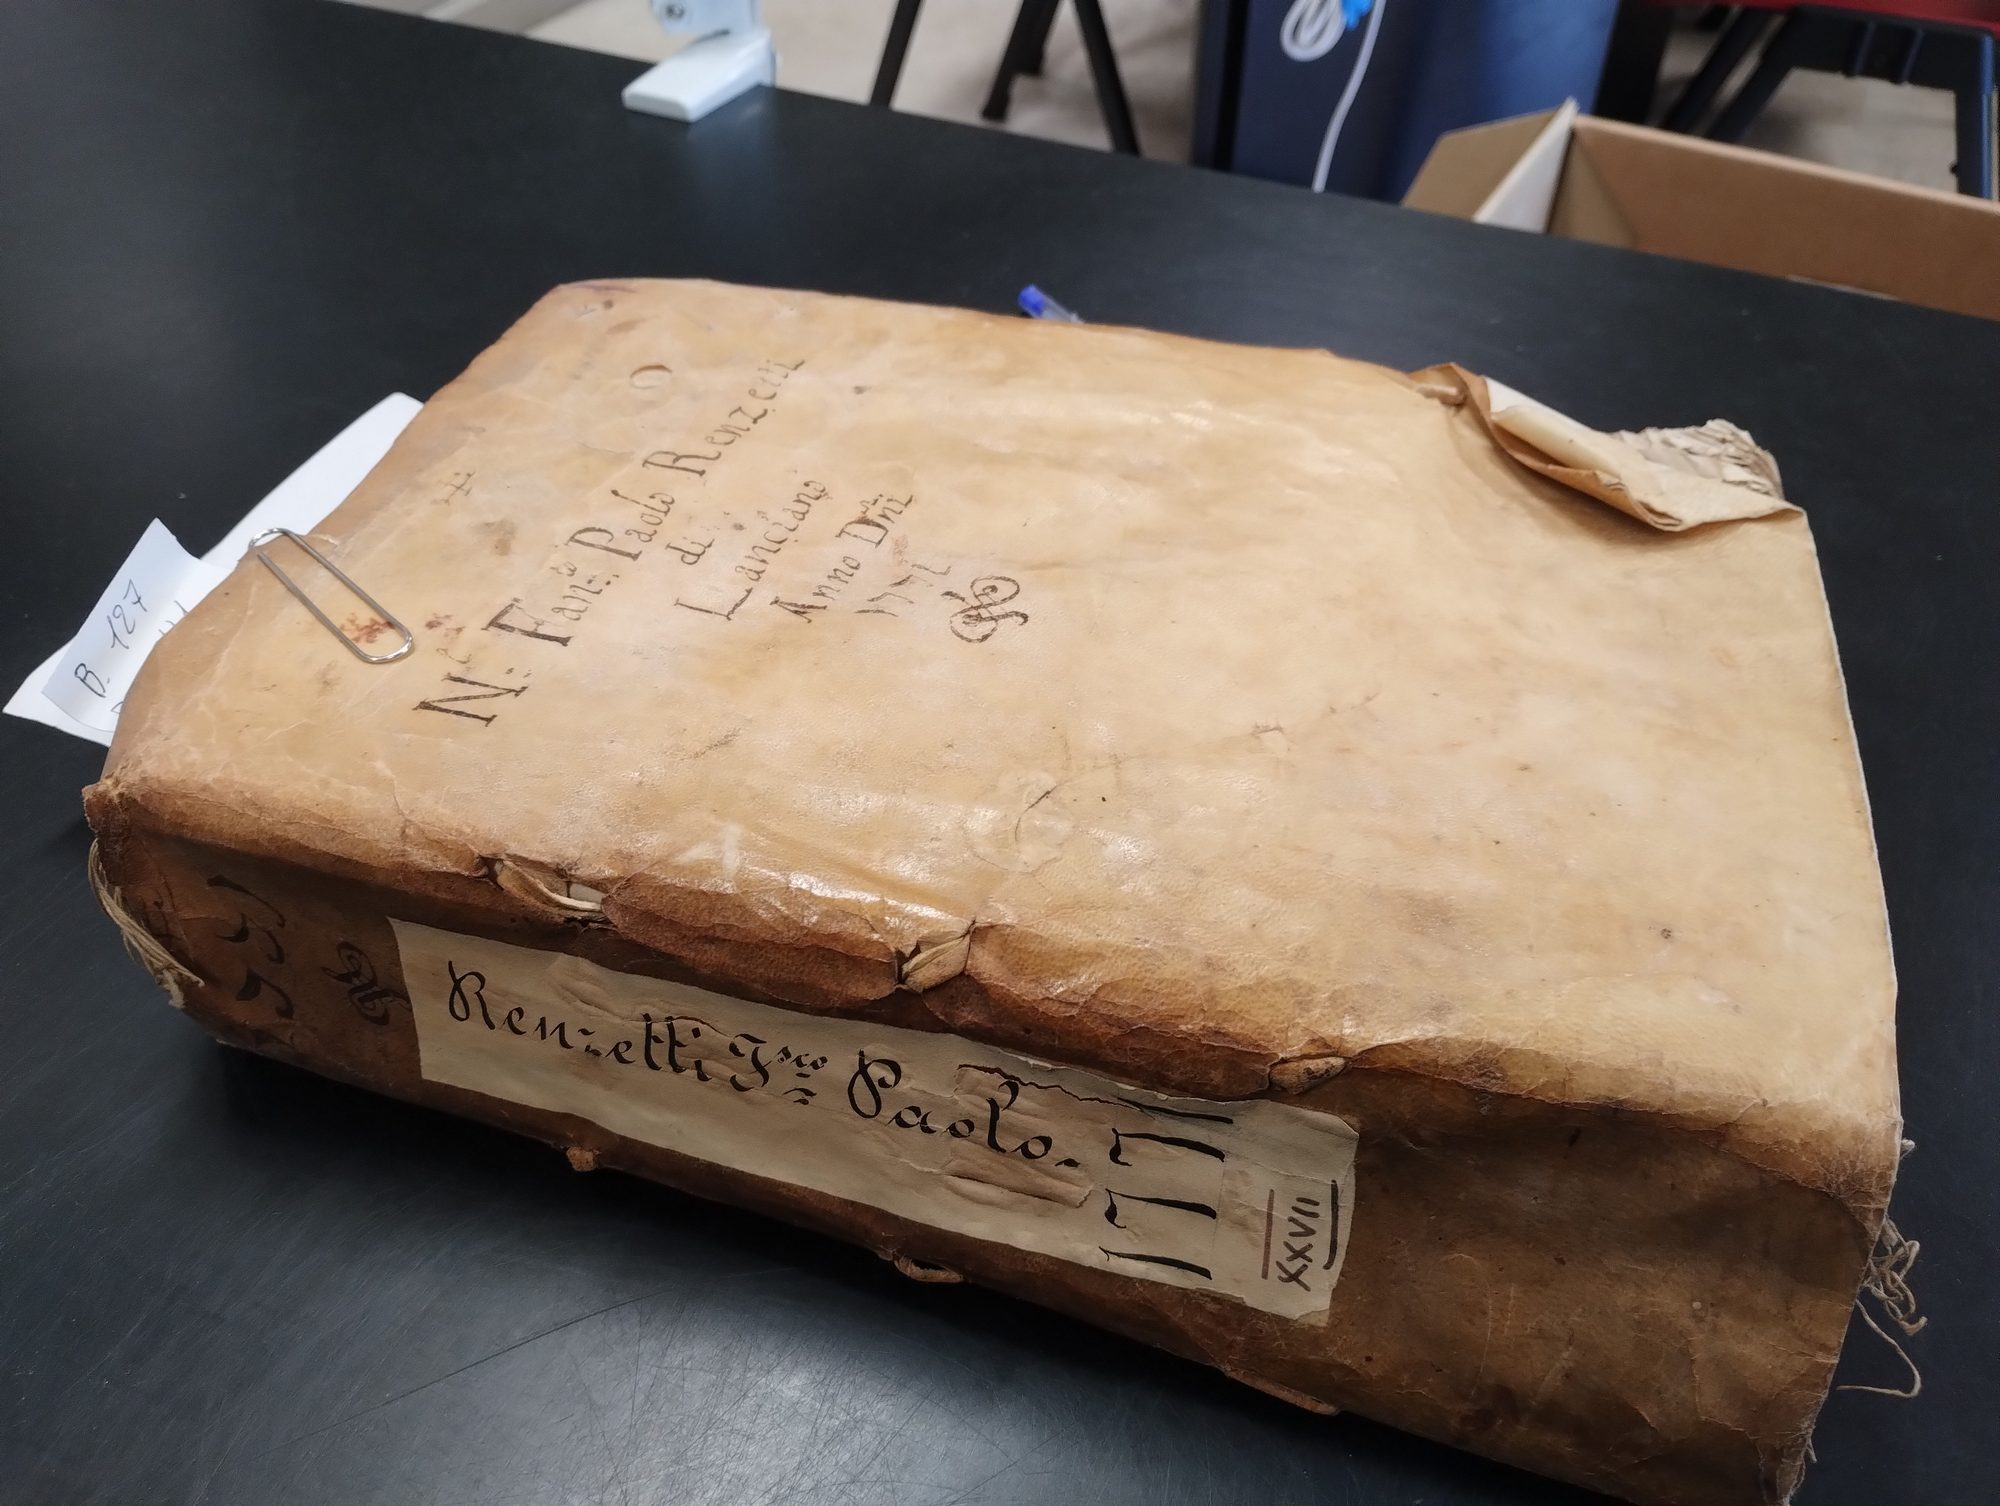 N.r Fran:co Paolo Renzetti
di
Lanciano
Anno Dni
1771
Renzetti Fsco Paolo.
1771
XXVII
B. 127